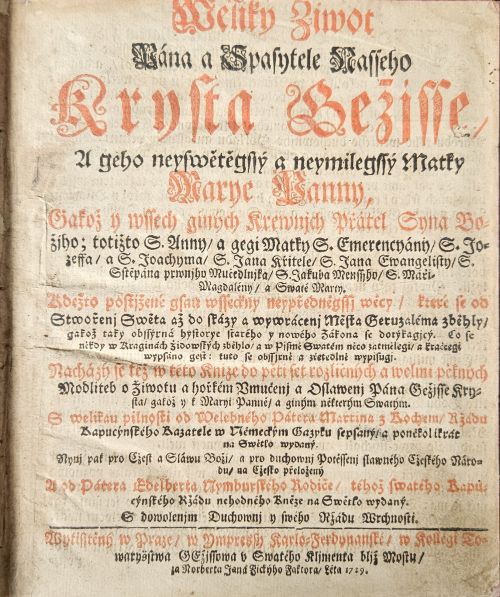 Welíký Ziwot
Pána a Spasytele Nasseho
Krysta Gežisse/
A geho neyswětěgssý a neymilegssý Matky
Marye Panny,
Gakož y wssech giných Krewnjch Přátel Syna Bo-
žjho; totižto S. Anny/ a gegi Matky S. Emerencyány/ S. Jo-
zeffa/ a S. Joachyma/ S. Jana Křtitele/ S. Jana Ewangelisty/ S.
Sstěpána prwnjho Mučedlnjka/ S. Jakuba Menssýho/ S. Maři-
Magdalény/ a Swaté Marty.
Kdežto postjžené gsau wsseckny neypředněgssý wěcy/ které se od
Stwořenj Swěta až do skázy a wywrácenj Města Geruzaléma zběhly/
gakož taky obssýrná hystorye starého y nowého Zákona se dotýkagjcý. Co se
někdy w Kraginách Židowských sběhlo/ a w Pjsmě Swatém něco zatmělegi/ a kračegi
wypsáno gest: tuto se obssýrně a zřetedlně wypisugi.
Nacházý se též w této Knize do pěti set rozličných a welmi pěkných
Modliteb o Žiwotu a hořkém Vmučenj a Oslawenj Pána Gežisse Kry-
sta/ gakož y k Maryi Panně/ a giným některým Swatým.
S welikau pilnostj od Welebného Pátera Martina z Kochem/ Ržádu
Kapucýnského Kazatele w Německým Gazyku sepsaný/ a poněkolikrát
na Swětlo wydaný.
Nynj pak pro Cžest a Sláwu Božj/ a pro duchownj Potěssenj slawného Cžeského Náro-
du/ na Cžesko přeložený
A od Pátera Edelberta Nymburského Rodiče/ téhož swatého Kapu-
cýnského Ržádu nehodného Kněze na Swětlo wydaný.
S dowolenjm Duchownj y swého Ržádu Wrchnosti.
Wytisstěný w Praze/ w Ympressý Karlo-Ferdynanské/ w Kollegi To-
waryšstwa GEžissowa v Swatého Klimenta blíž Mostu/
za Norberta Jana Fickýho Faktora/ Léta 1729.